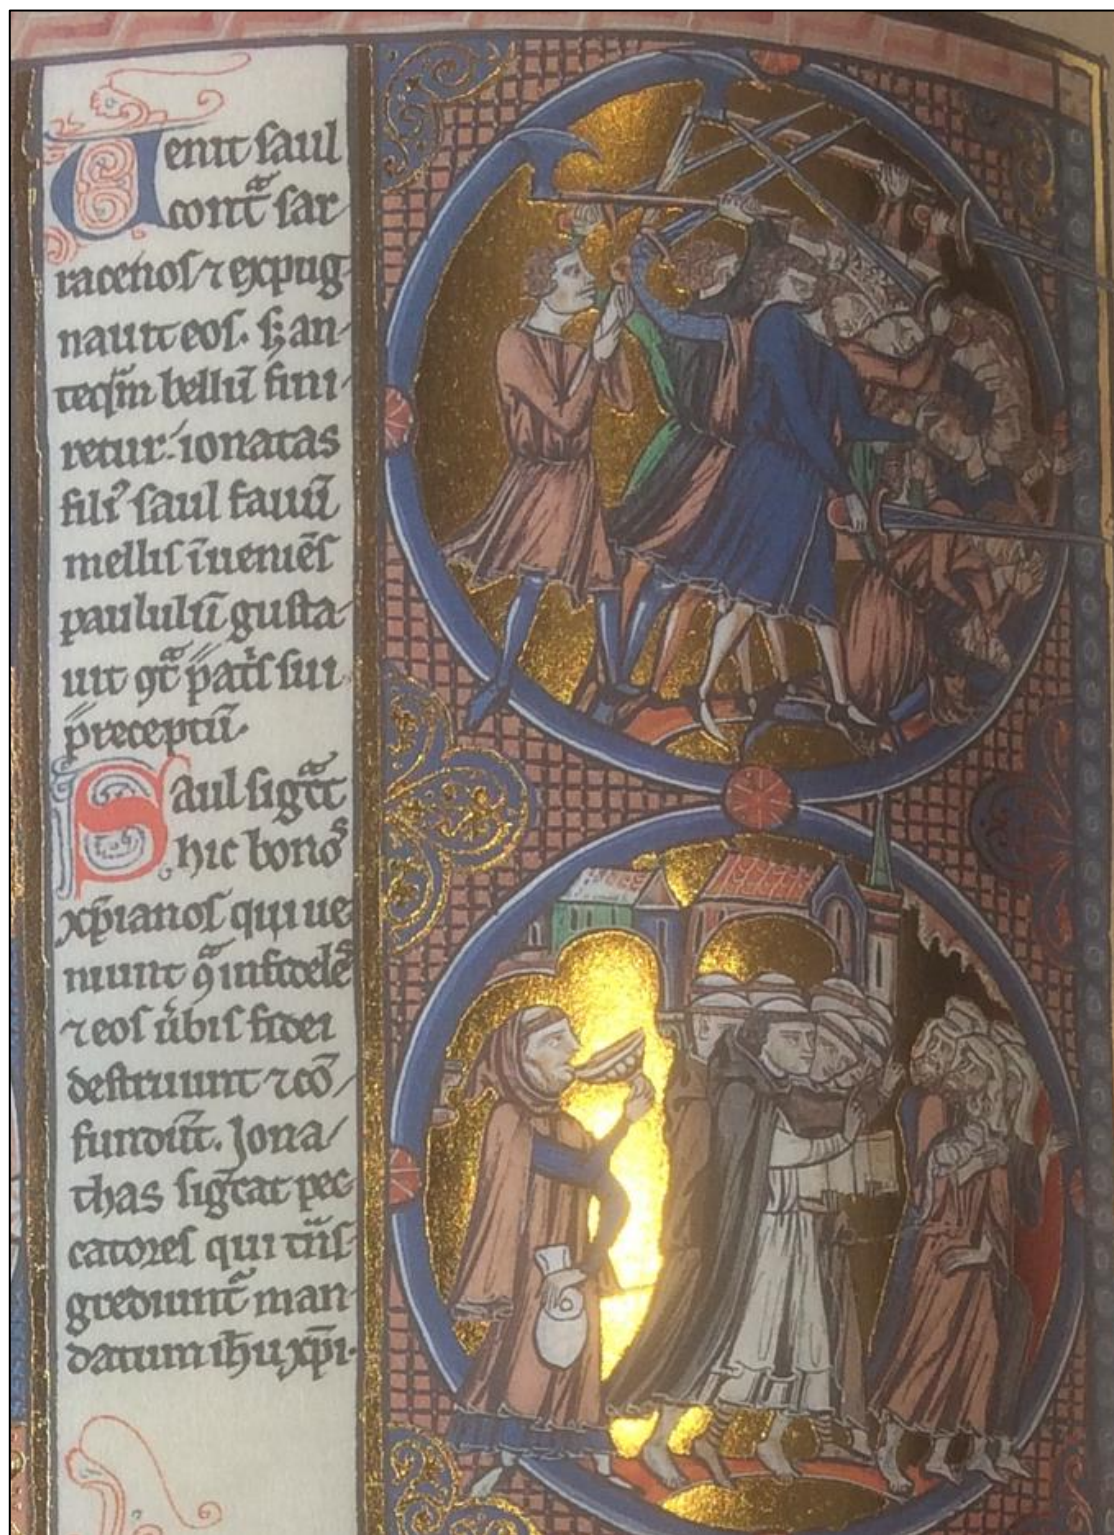 Uenit saul
cont̃a sar
racenos ⁊ expug
nauit eos. s; an
teq̃m bellũ fini
retur. ionatas
fili⁹ saul fauũ
mellis ĩueniẽs
paululũ gusta
uit ꝯt̃a p̃at̃s sui
p̃receptũ.
Saul sigãt
hic bono⁵
xp̃ianos qui ue
niunt ꝯ̃ infideles
⁊ eos ũbis fidei
destruunt ⁊ cõ
fundũt. Jona
thas sigc̃at pec
catores qui tñs
grediunt̃ man
datum ih̃u xp̃i.